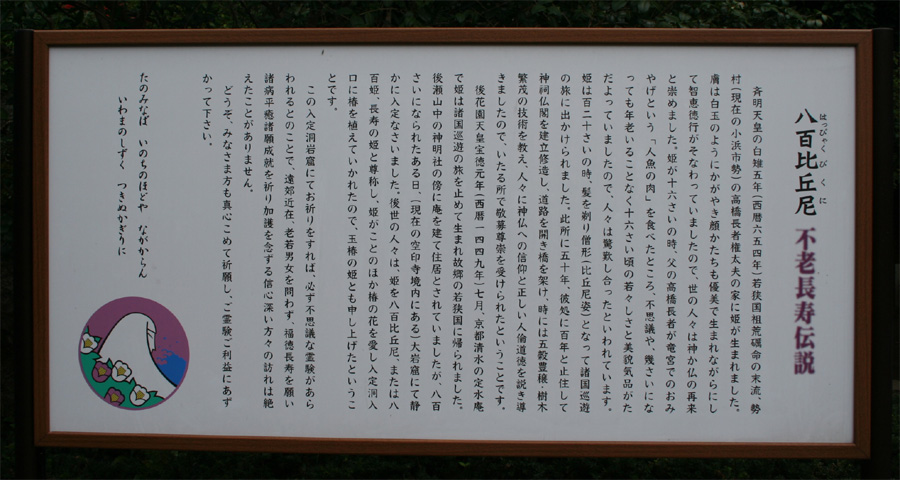 はっぴゃくびくに
八百比丘尼 不老長寿伝説
斉明天皇の白雉五年（西暦六五四年）若狭国祖荒礪命の末流、勢
村（現在の小浜市勢）の高橋長者権太夫の家に姫が生まれました。
膚は白玉のようにかがやき顔かたちも優美で生まれながらにし
て智恵徳行がそなわっていましたので、世の人々は神か仏の再来
と崇めました。姫が十六さいの時、父の高橋長者が竜宮でのおみ
やげという「人魚の肉」を食べたところ、不思議や、幾さいにな
っても年老いることなく十六さい頃の若々しさと美貌気品がた
だよっていましたので、人々は驚歎し合ったといわれています。
姫は百二十さいの時、髪を剃り僧形（比丘尼姿）となって諸国巡遊
の旅に出かけられました。此所に五十年、彼処に百年と止住して
神祠仏閣を建立修造し、道路を開き橋を架け、時には五穀豊穣、樹木
繁茂の技術を教え、人々に神仏への信仰と正しい人倫道徳を説き導
きましたので、いたる所で敬募尊崇を受けられたということです。
後花園天皇宝徳元年（西暦一四四九年）七月、京都清水の定水庵
で姫は諸国巡遊の旅を止めて生まれ故郷の若狭国に帰られました。
後瀬山中の神明社の傍に庵を建て住居とされていましたが、八百
さいになられたある日、（現在の空印寺境内にある）大岩窟にて静
かに入定なさいました。後世の人々は、姫を八百比丘尼、または八
百姫、長寿の姫と尊称し、姫がことのほか椿の花を愛し入定洞入
口に椿を植えていかれたので、玉椿の姫とも申し上げたというこ
とです。
この入定洞岩窟にてお祈りをすれば、必ず不思議な霊験があら
われるとのことで、遠郊近在、老若男女を問わず、福徳長寿を願い
諸病平癒諸願成就を祈り加護を念ずる信心深い方々の訪れは絶
えたことがありません。
どうぞ、みなさま方も真心こめて祈願し、ご霊験ご利益にあず
かって下さい。
たのみなば いのちのほどや ながからん
いわまのしずく つきぬかぎりに